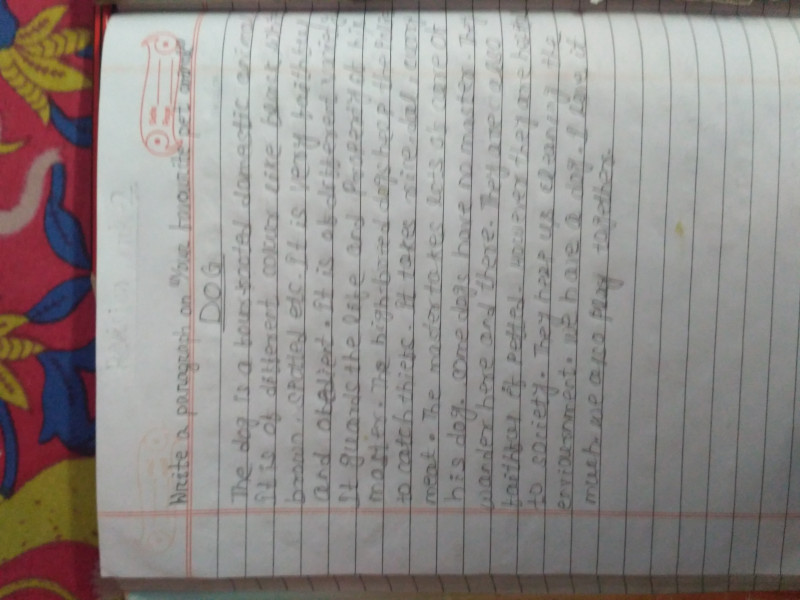 Write a paragraph on your favourite pet animal
DOG
The dog is a four footed domestic anima
It is of different colour like black wh
brown. spotted etc. It is very faithful
and obedient. It is of different
It guards the life and Property of his
master. The high breed dogs help the
to catch thiefs. It takes rice, dal,
meat. The master takes lots of care of
his dog. Some dogs have no master. Th
wander here and there. They are also
faithful if petted. However they are
to society. They help us cleaning the
environment. we have a dog. I love it
much. we also play together.